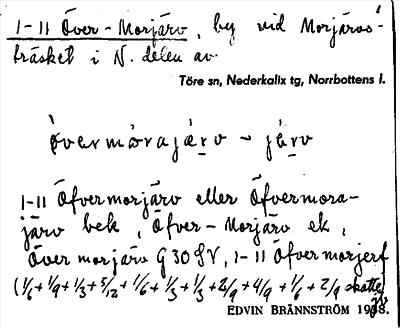 1-11 Över-Morjärv, by vid Morjärvs-
träsket i N. delen av
Töre sn, Nederkalix tg, Norrbottens l.
övermòrajæ̀rv - jèrv
1-11 Öfvermorjärv eller Öfvermora-
järv bek, Öfver-Morjärv ek,
Över morjärv G30SV, 1-11 Öfvermorjerf
(1/6 + 1/9 + 1/3 + 5/12 + 1/6 + 1/3 + 1/3 + 2/9 + 4/9 + 1/6 + 2/9 skatte)
EDVIN BRÄNNSTRÖM 1938.